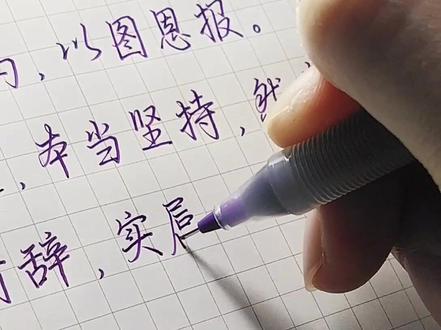 ，以图恩报。
，本当坚持，
辞，实